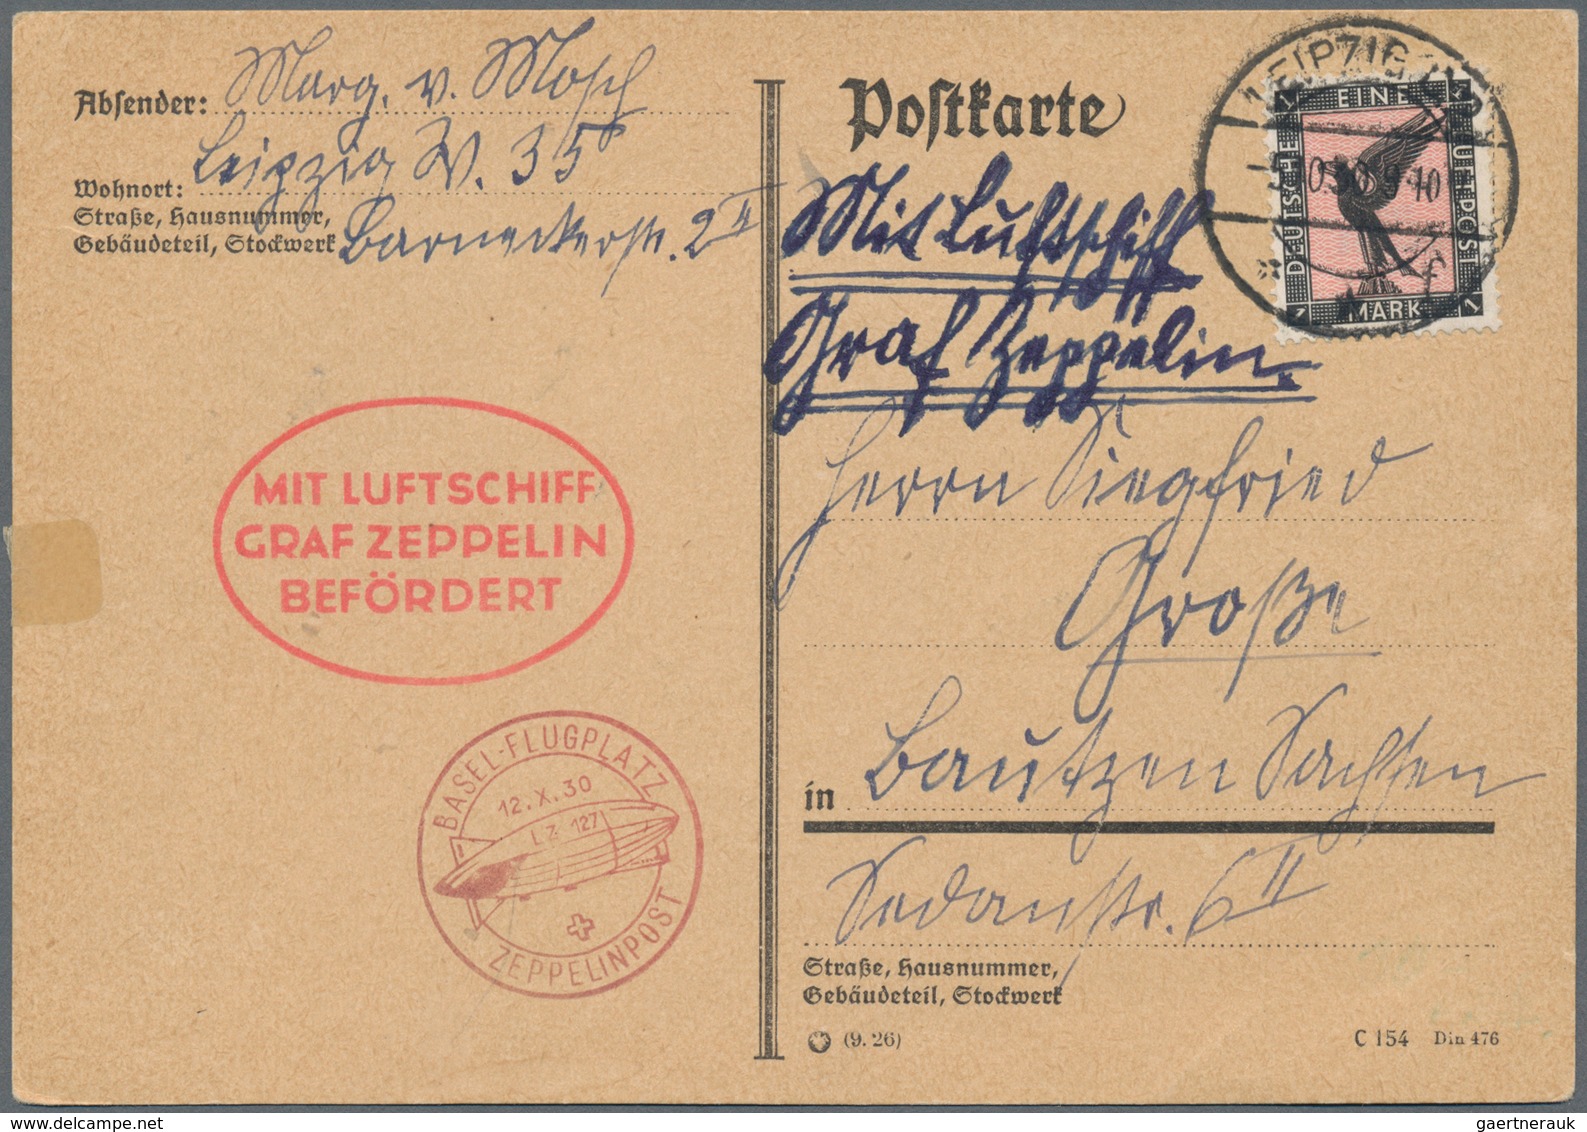 Absender: Marg. v. Mosch
Leipzig W. 35
Wohnort:
Straße, Hausnummer,
Gebäudeteil, Stockwerk Barneckerstr. 2 II
MIT LUFTSCHIFF
GRAF ZEPPELIN
BEFÖRDERT
BASEL-FLUGPLATZ
12.X.30
LZ 127
ZEPPELINPOST
Postkarte
LEIPZIG
30 9-10
EINE
DEUTSCHE
FLUGPOST
MARK
1
1
1
1
Mit Luftschiff
Graf Zeppelin
Herrn Siegfried
Große
in Bautzen Sachsen
Sedanstr. 6 II
Straße, Hausnummer,
Gebäudeteil, Stockwerk
(9. 26)
C 154 Din 476
gaertnerauk